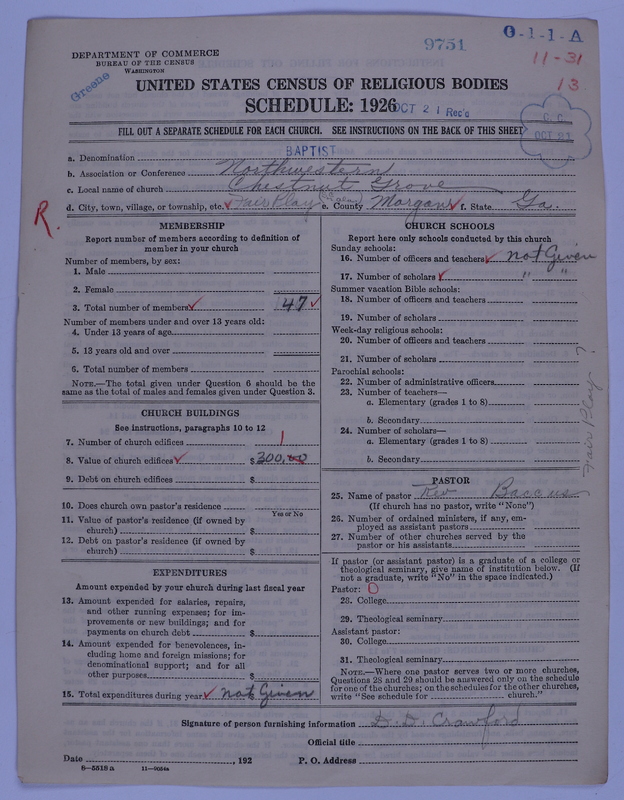 9751
O-1-1-A
DEPARTMENT OF COMMERCE
BUREAU OF THE CENSUS
WASHINGTON
11-31
13
Greene
UNITED STATES CENSUS OF RELIGIOUS BODIES
SCHEDULE: 1926
OCT 21 Rec'd
C. C.
OCT 21
FILL OUT A SEPARATE SCHEDULE FOR EACH CHURCH. SEE INSTRUCTIONS ON THE BACK OF THIS SHEET
a. Denomination BAPTIST
b. Association or Conference Northwestern
c. Local name of church Chestnut Grove
d. City, town, village, or township, etc. Fair Play e. County Morgan f. State Ga.
R.
MEMBERSHIP
Report number of members according to definition of
member in your church
Number of members, by sex:
1. Male
2. Female
3. Total number of members 47
Number of members under and over 13 years old:
4. Under 13 years of age
5. 13 years old and over
6. Total number of members
NOTE.—The total given under Question 6 should be the
same as the total of males and females given under Question 3.
CHURCH BUILDINGS
See instructions, paragraphs 10 to 12
7. Number of church edifices 1
8. Value of church edifices $300.00
9. Debt on church edifices $
10. Does church own pastor's residence
Yes or No
11. Value of pastor's residence (if owned by
church) $
12. Debt on pastor's residence (if owned by
church) $
EXPENDITURES
Amount expended by your church during last fiscal year
13. Amount expended for salaries, repairs,
and other running expenses; for im-
provements or new buildings; and for
payments on church debt $
14. Amount expended for benevolences, in-
cluding home and foreign missions; for
denominational support; and for all
other purposes $
15. Total expenditures during year not Given
CHURCH SCHOOLS
Report here only schools conducted by this church
Sunday schools:
16. Number of officers and teachers not Given
17. Number of scholars " "
Summer vacation Bible schools:
18. Number of officers and teachers
19. Number of scholars
Week-day religious schools:
20. Number of officers and teachers
21. Number of scholars
Parochial schools:
22. Number of administrative officers
23. Number of teachers—
a. Elementary (grades 1 to 8)
b. Secondary
24. Number of scholars—
a. Elementary (grades 1 to 8)
b. Secondary
Fair Play ?
PASTOR
25. Name of pastor Rev Baccus
(If church has no pastor, write "None")
26. Number of ordained ministers, if any, em-
ployed as assistant pastors
27. Number of other churches served by the
pastor or his assistants
If pastor (or assistant pastor) is a graduate of a college or
theological seminary, give name of institution below. (If
not a graduate, write "No" in the space indicated.)
Pastor: 0
28. College
29. Theological seminary
Assistant pastor:
30. College
31. Theological seminary
NOTE.—Where one pastor serves two or more churches,
Questions 28 and 29 should be answered only on the schedule
for one of the churches; on the schedules for the other churches,
write "See schedule for church."
Signature of person furnishing information D. D. Crawford
Official title
Date , 192 P. O. Address
8-5518a 11-9034a